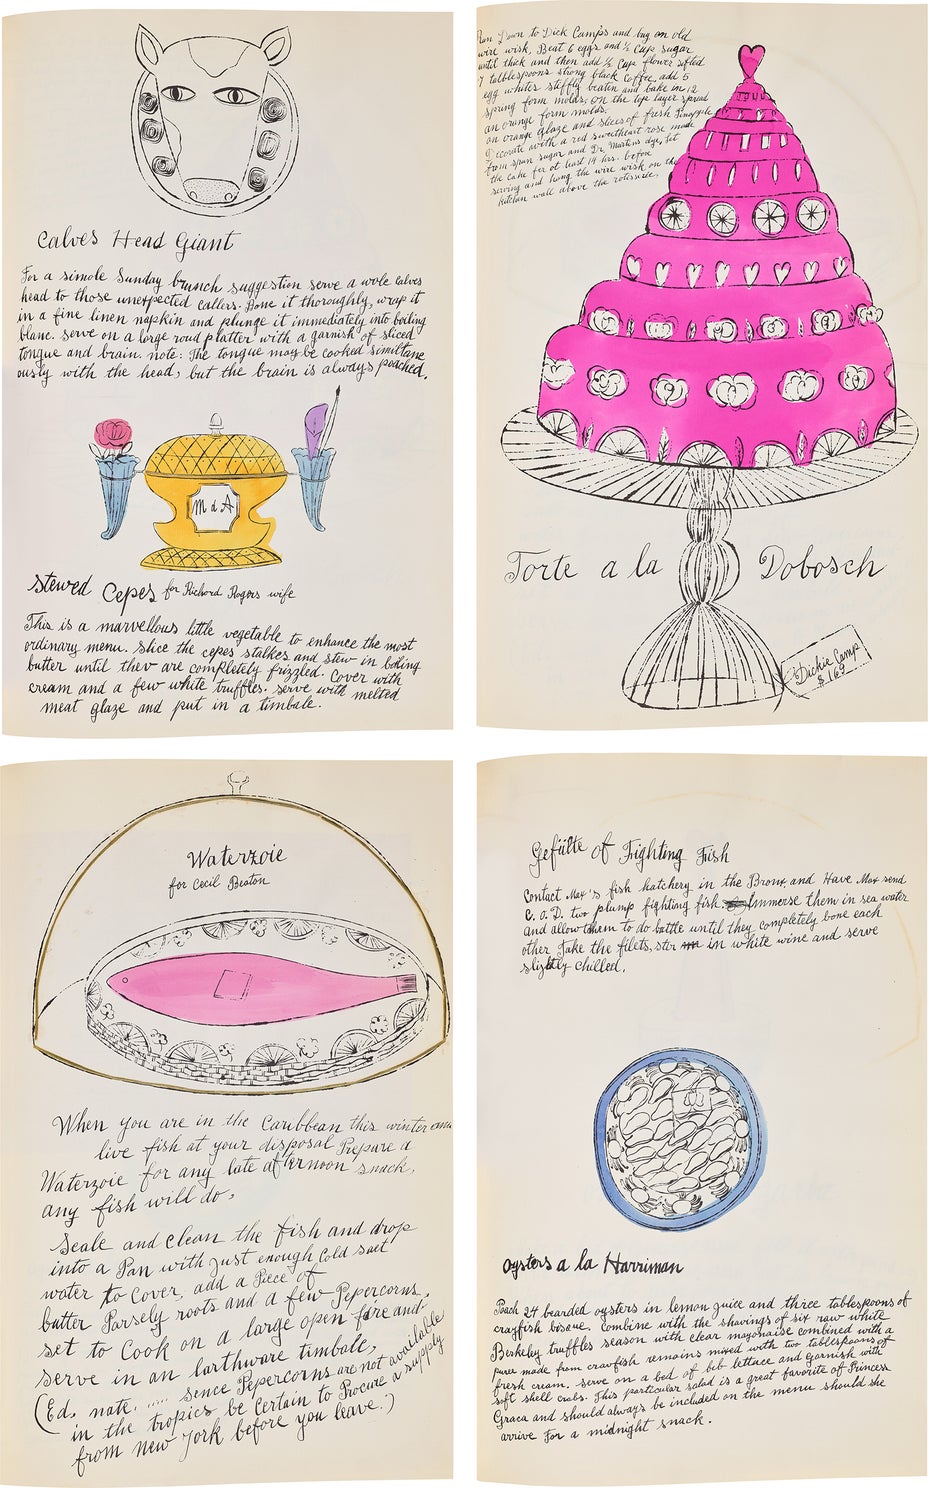 Calves Head Giant
For a simole Sunday brunch suggestion serve a wole calves
head to those unexpected callers. Bone it thoroughly, wrap it
in a fine linen napkin and plunge it immediately into boiling
blanc. serve on a large roud platter with a garnish of sliced
tongue and brain. note: The tongue may be cooked similtane
ously with the head, but the brain is always poached.
M d A
Stewed Cepes for Richard Rogers wife
This is a marvellous little vegetable to enhance the most
ordinary menu. slice the cepes stalkes and stew in boling
butter until thev are completely frizzled. Cover with
cream and a few white truffles. serve with melted
meat glaze and put in a timbale.
Run Down to Dick Camps and buy an old
wire wisk. Beat 6 eggs and ½ Cup sugar
until thick and then add ½ Cup flower sifted
7 talblespoons strong black coffee, add 5
egg whites stiffly beaten and bake in 12
spring form molds. on the top layer spread
an orange form molds.
an orange glaze and slices of fresh Pineapple
Decorate with a red sweetheart rose made
from spun sugar and Dr. Martens dye, let
the cake fer at least 14 hrs. before
serving and hang the wire wisk on the
kitchen wall above the rotisserie.
Torte a la Dobosch
Dickie Camp
$ 1.69
Waterzoie
for Cecil Beaton
When you are in the Caribbean this winter
live fish at your disposal Prepare a
Waterzoie for any late afternoon snack,
any fish will do.
Scale and clean the fish and drop
into a Pan with just enough Cold salt
water to Cover, add a Piece of
butter Parsely roots and a few Pepercorns,
set to Cook on a large open fire and
serve in an earthware timbale,
(Ed. note..... Since Pepercorns are not available
in the tropics be Certain to Procure a supply
from New York before you leave.)
Gefülte of Fighting Fish
Contact Max's fish hatchery in the Bronx and Have Max send
C.O.D. two plump fighting fish. Immerse them in sea water
and allow them to do battle until they completely bone each
other Take the filets, stir in white wine and serve
slightly chilled.
oysters a la Harriman
Poach 24 bearded oysters in lemon juice and three tablespoons of
crayfish bisque. Combine with the shavings of six raw white
Berkeley truffles season with clear mayonaise combined with a
puree made from crawfish remains mixed with two tablespoons of
fresh cream. serve on a bed of beb lettace and garnish with
soft shell crabs. This particular salad is a great favorite of Princess
Graca and should always be included on the menu should she
arrive For a midnight snack.